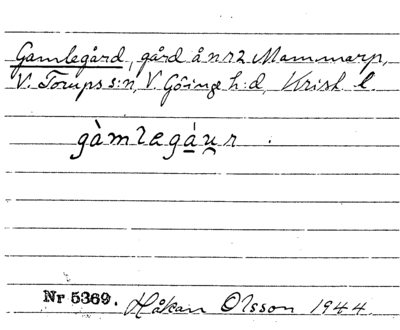 Gamlegård, gård å nr 2 Mammarp,
V. Torups s:n, V. Göinge h:d, Krist l.
gàmlegáu̯r .
Nr 5369. Håkan Olsson 1944.